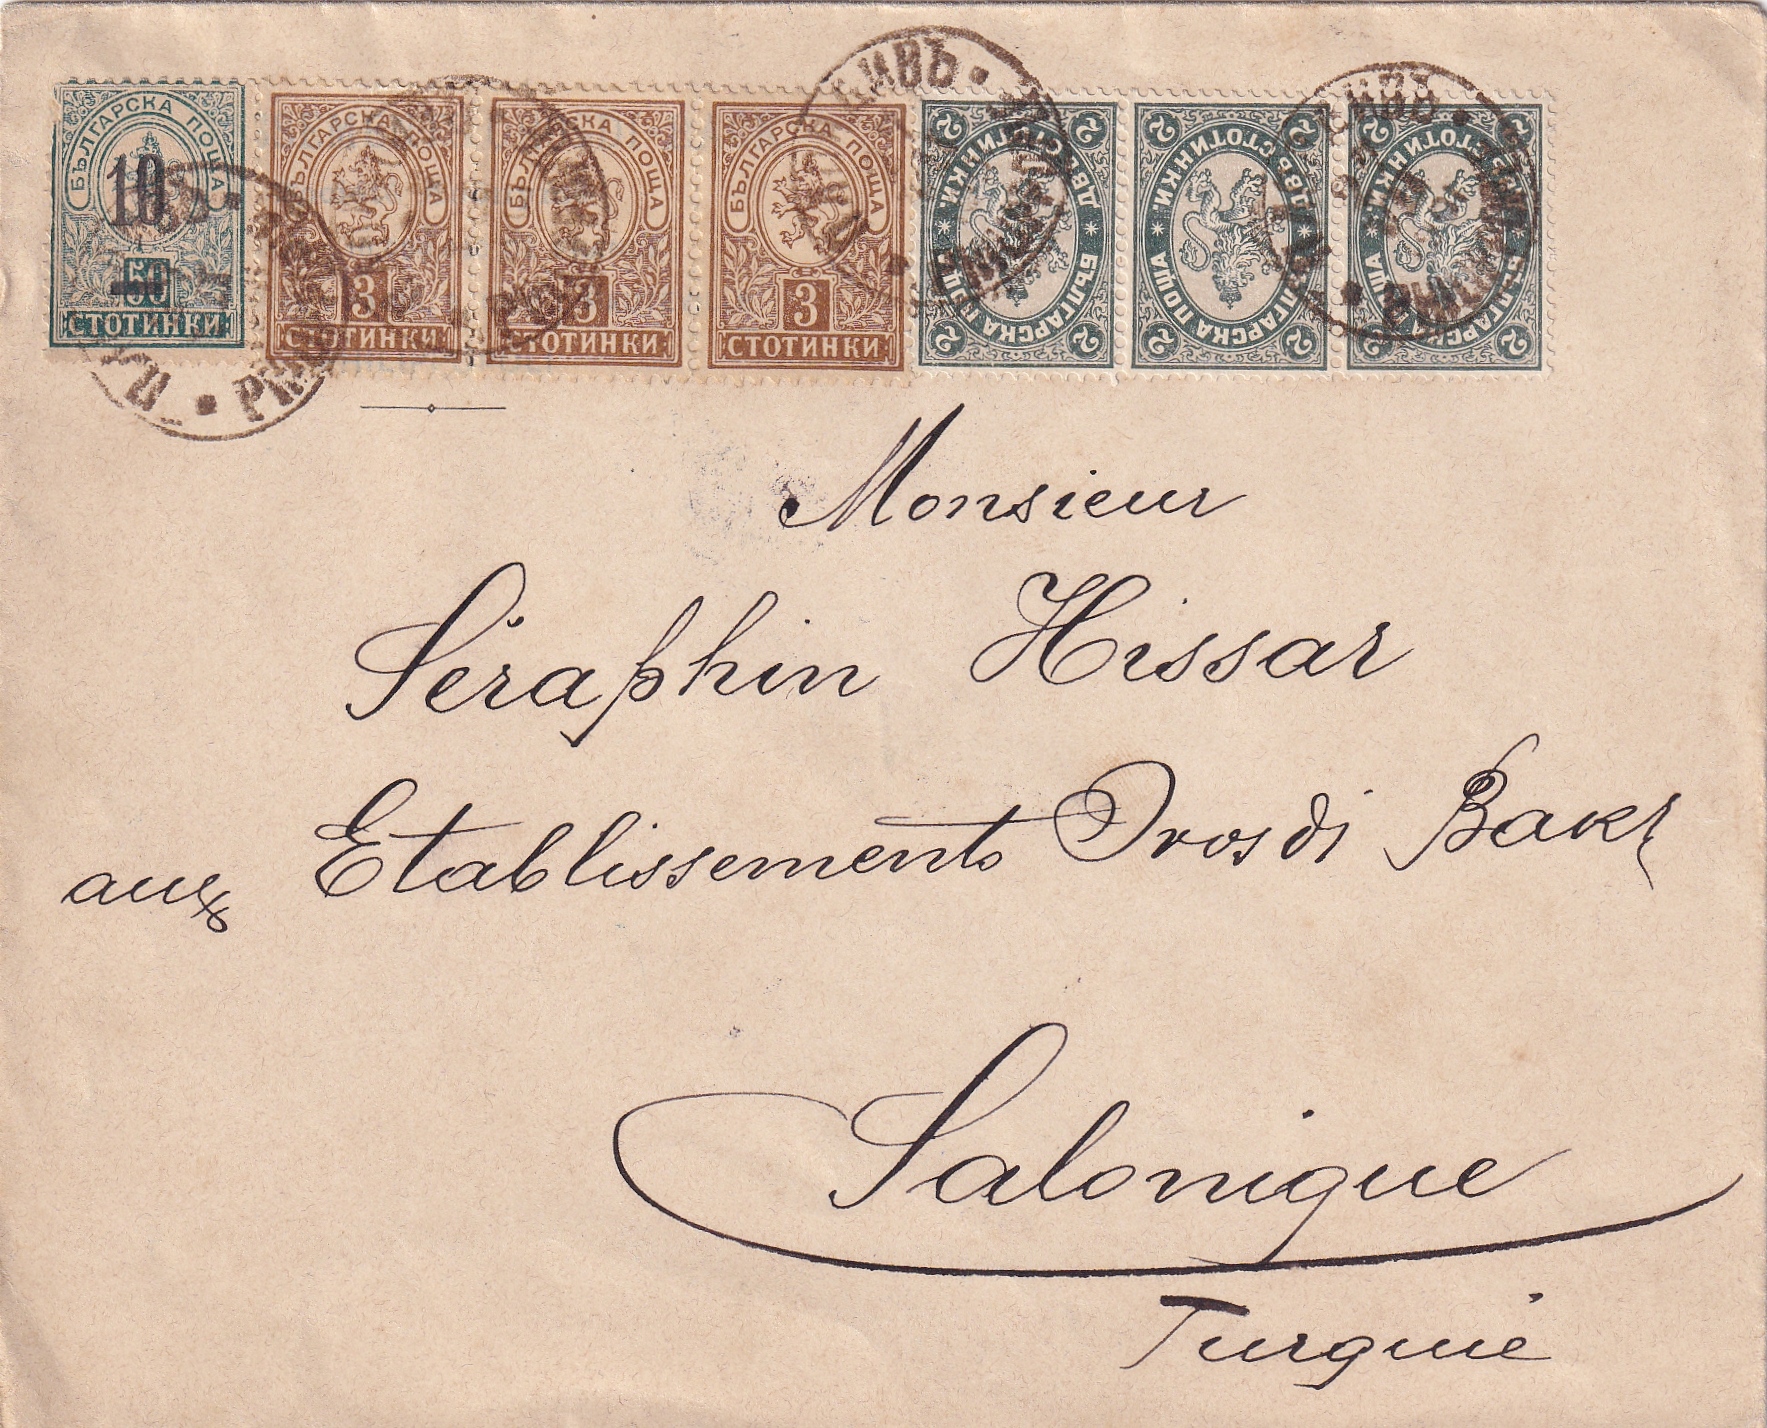 БЪЛГАРСКА ПОЩА
10
50
СТОТИНКИ
БЪЛГАРСКА ПОЩА
3
СТОТИНКИ
БЪЛГАРСКА ПОЩА
3
СТОТИНКИ
БЪЛГАРСКА ПОЩА
3
СТОТИНКИ
2 2
БЪЛГАРСКА ПОЩА
ДВѢ СТОТИНКИ
2 2
2 2
БЪЛГАРСКА ПОЩА
ДВѢ СТОТИНКИ
2 2
2 2
БЪЛГАРСКА ПОЩА
ДВѢ СТОТИНКИ
2 2
Monsieur
Séraphin Hissar
aux Etablissements Orosdi Back
Salonique
Turquie